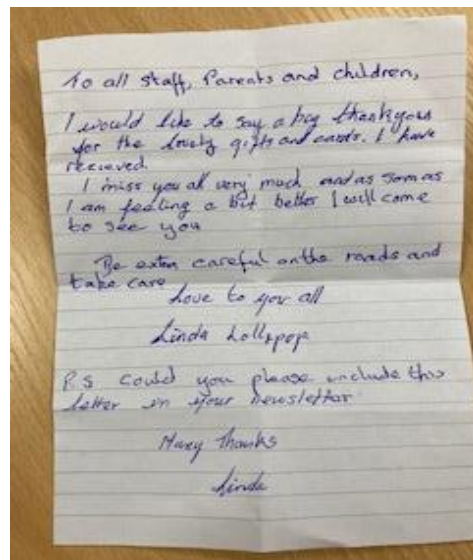 To all staff, Parents and children,
I would like to say a big thankyou
for the lovely gifts and cards. I have
recieved.
I miss you all very much and as soon as
I am feeling a bit better I will come
to see you
Be extra careful on the roads and
take care
Love to you all
Linda Lollypop
P.S Could you please include this
letter in your newsletter
Many thanks
Linda